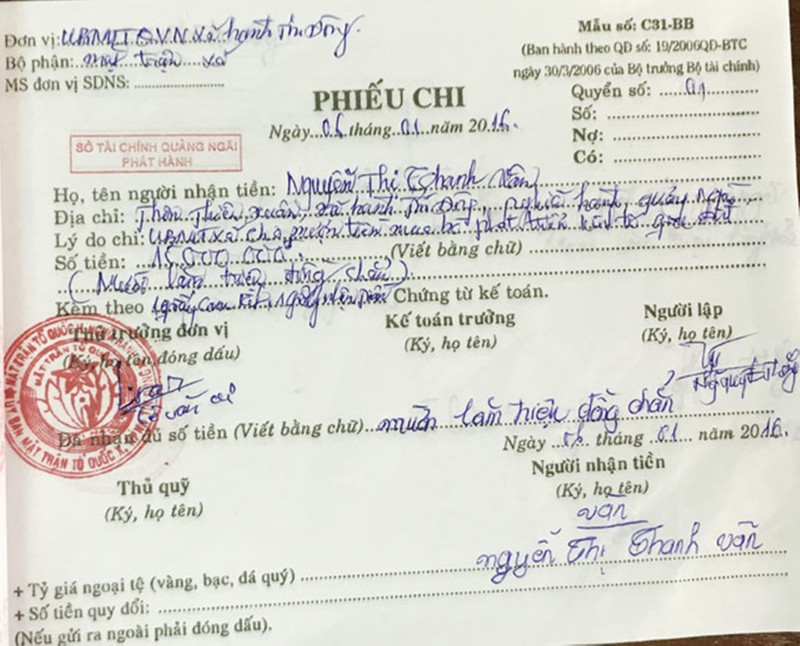 Đơn vị: UBMTTQVN xã hành Tín Đông
Mẫu số: C31-BB
Bộ phận: mặt trận xã
(Ban hành theo QD số: 19/2006QD-BTC
MS đơn vị SDNS:
ngày 30/3/2006 của Bộ trưởng Bộ tài chính)
PHIẾU CHI
Quyển số: 01
Ngày 06 tháng 01 năm 2016.
Số:
Nợ:
Có:
SỞ TÀI CHÍNH QUẢNG NGÃI
PHÁT HÀNH
Họ, tên người nhận tiền: Nguyễn Thị Thanh Vân
Địa chỉ: Thôn Thiên Xuân, xã hành Tín Đông, nghĩa hành, quảng Ngãi
Lý do chi: UBMT xã cho mượn tiền mua bò phát triển kinh tế gia đình
Số tiền: 15.000.000. (Viết bằng chữ)
(Mười lăm triệu đồng chẵn).
Kèm theo Chứng từ kế toán.
Thủ trưởng đơn vị
Kế toán trưởng
Người lập
(Ký, họ tên, đóng dấu)
(Ký, họ tên)
(Ký, họ tên)
Đã nhận đủ số tiền (Viết bằng chữ) mười lăm triệu đồng chẵn
Ngày 06 tháng 01 năm 2016.
Thủ quỹ
Người nhận tiền
(Ký, họ tên)
(Ký, họ tên)
vân
nguyễn Thị Thanh vân
+ Tỷ giá ngoại tệ (vàng, bạc, dá quý)
+ Số tiền quy đổi:
(Nếu gửi ra ngoài phải đóng dấu).